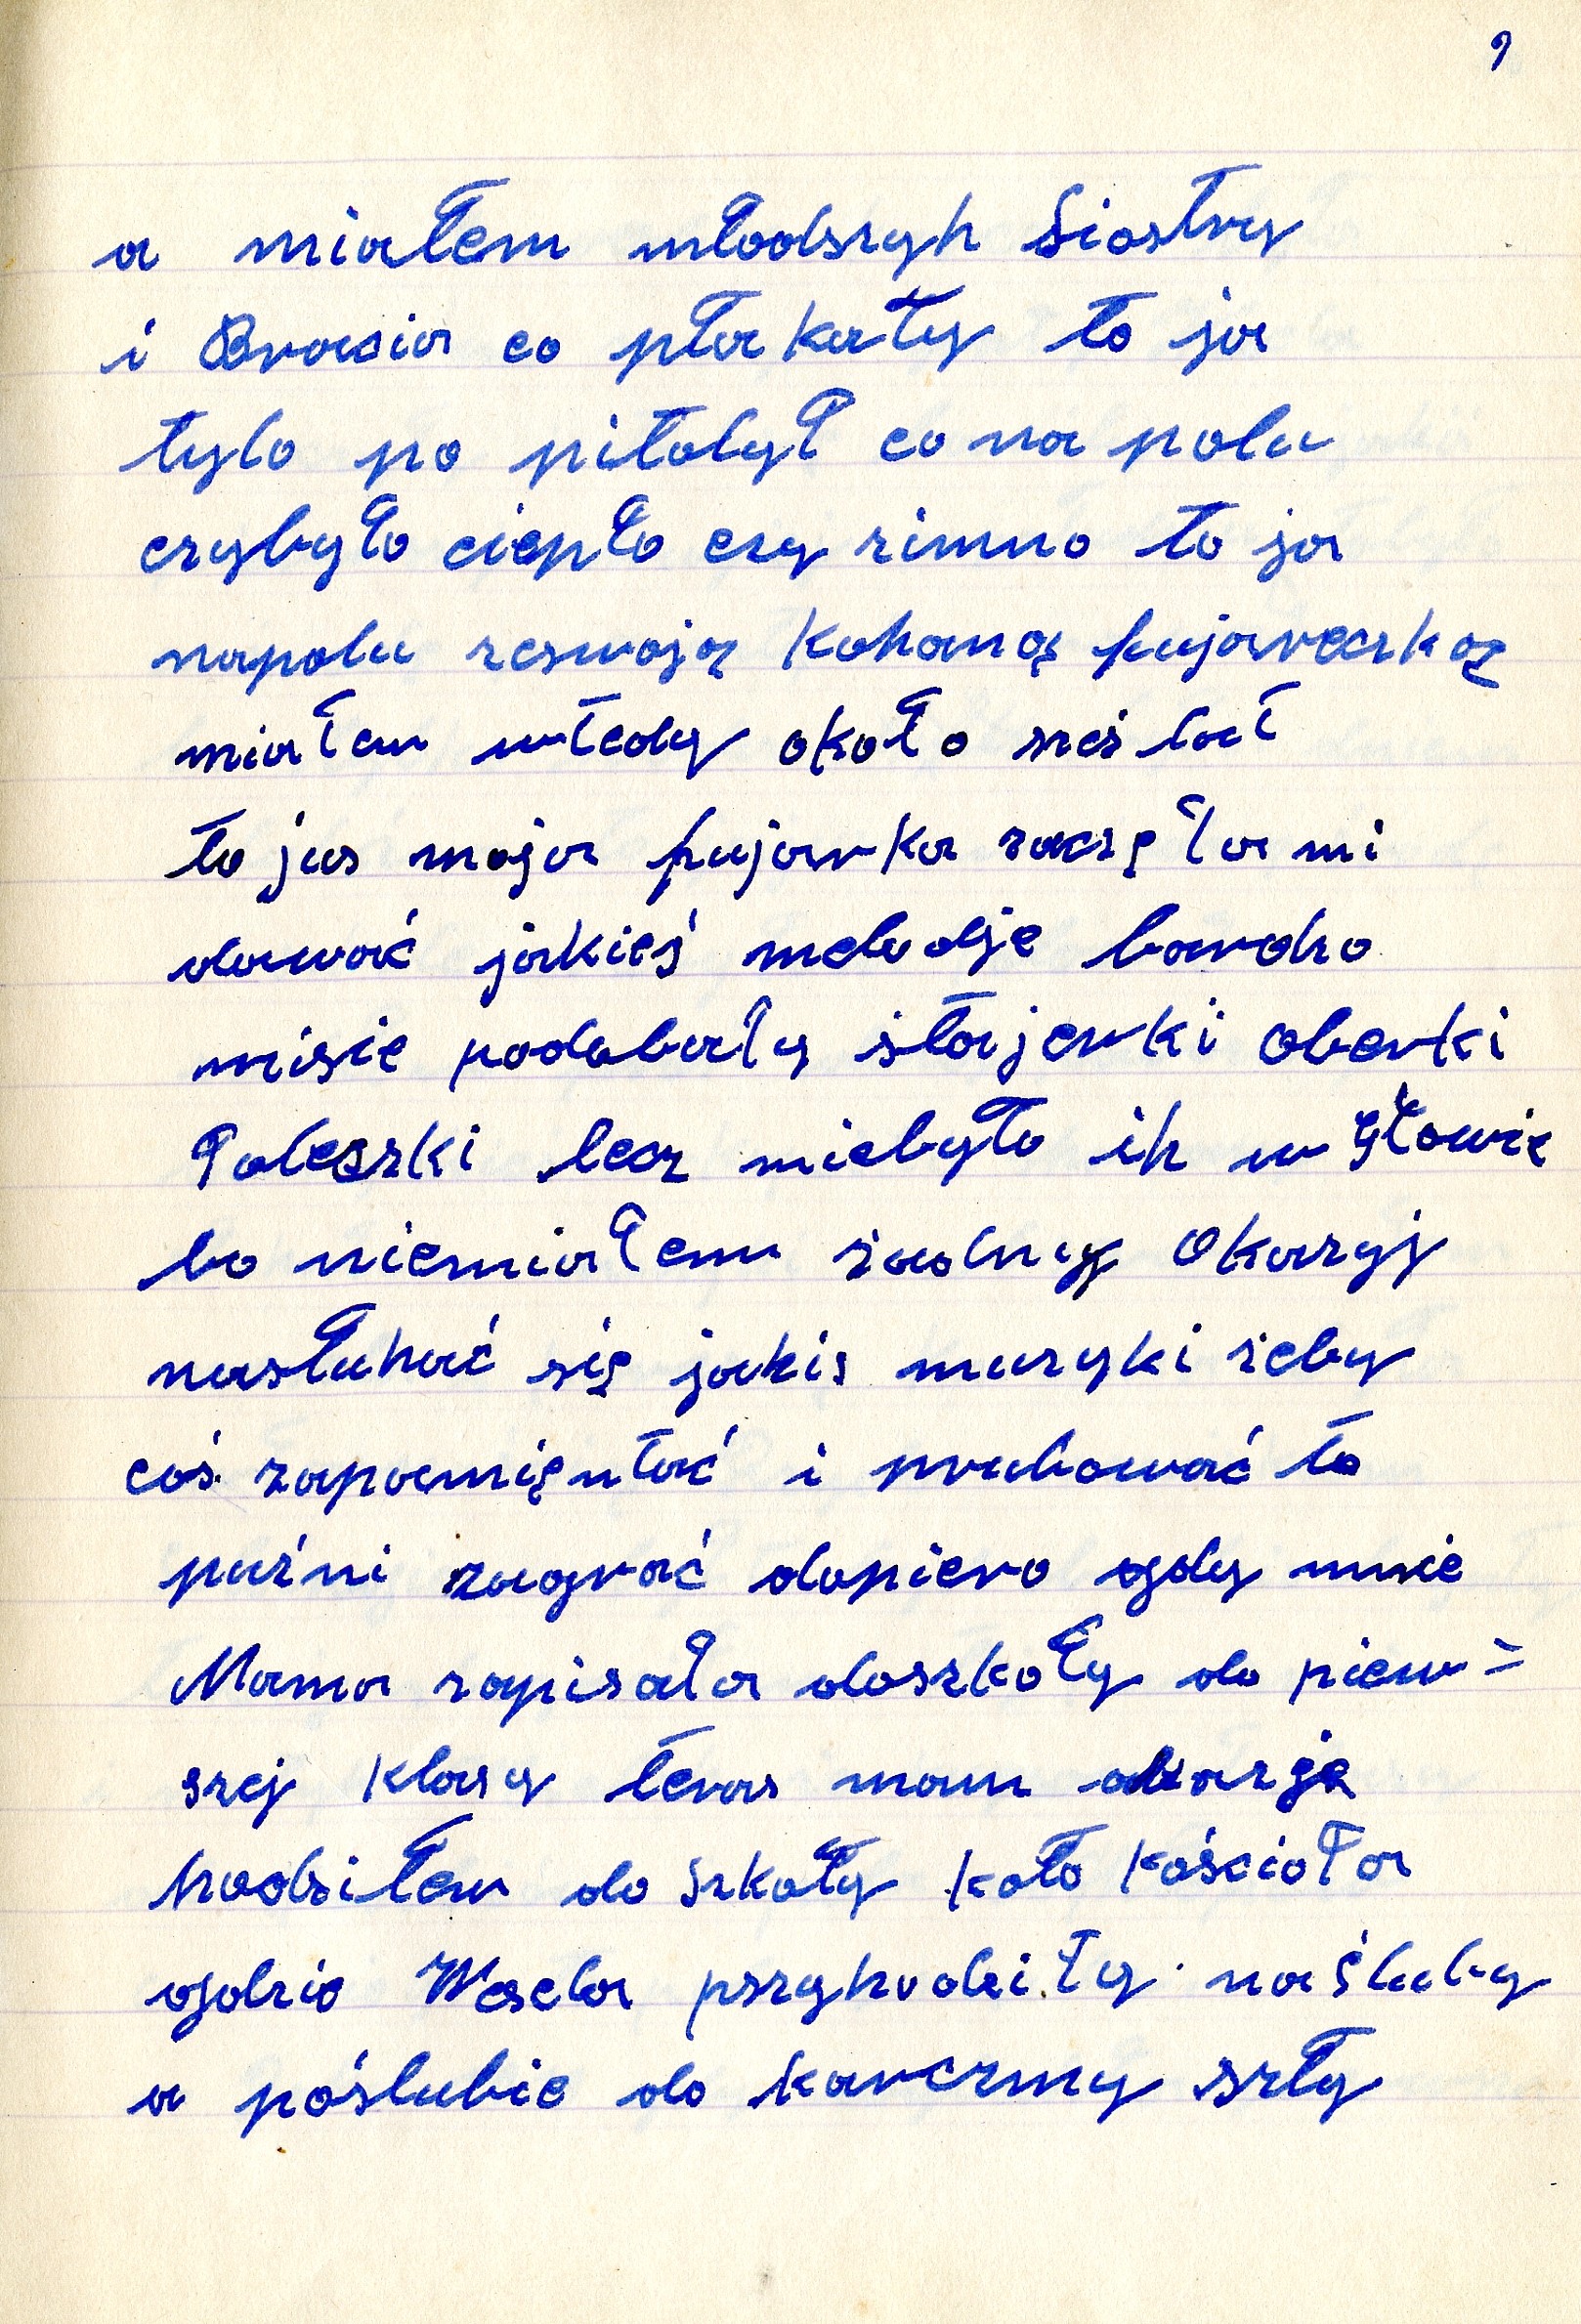 9
a miałem młodszyh Siostry
i Bracia co płakały to ja
tylo po pitolył co na polu
czybyło ciepło czy zimno to ja
napolu zeswoją kohaną fujareczką
miałem wtedy około sześ lat
to jus moja fujarka zaczęła mi
dawać jakieś melodje bardzo
misie podobały śtajerki oberki
Poleczki lecz niebyło ih w głowie
bo niemiałem żadnyj Okazyj
nasłuhać się jakis muzyki żeby
coś zapamięntać i prubować to
puźni zagrać dopiero gdy mnie
Mama zapisała doszkoły do pierw=
szej klasy teras mam okazje
hodziłem do Szkoły koło kościoła
gdzie Wesela pszyhodziły naśluby
a pośłubie do karczmy szły